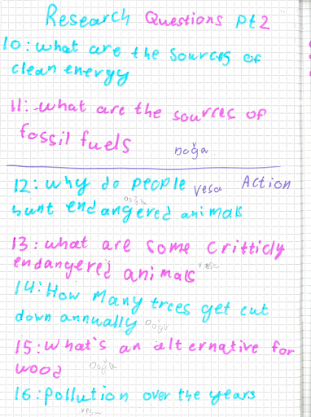 Research Questions Pt2
10: what are the sources of
clean energy
11: what are the sources of
fossil fuels
Doğa
12: why do people vesa Action
hunt endangered animals
Doğa
13: what are some crittidy
endangered animals vesa
14: How many trees get cut
down annually Doğa
15: what's an alternative for
wood Doğa
16: pollution over the years
vesa